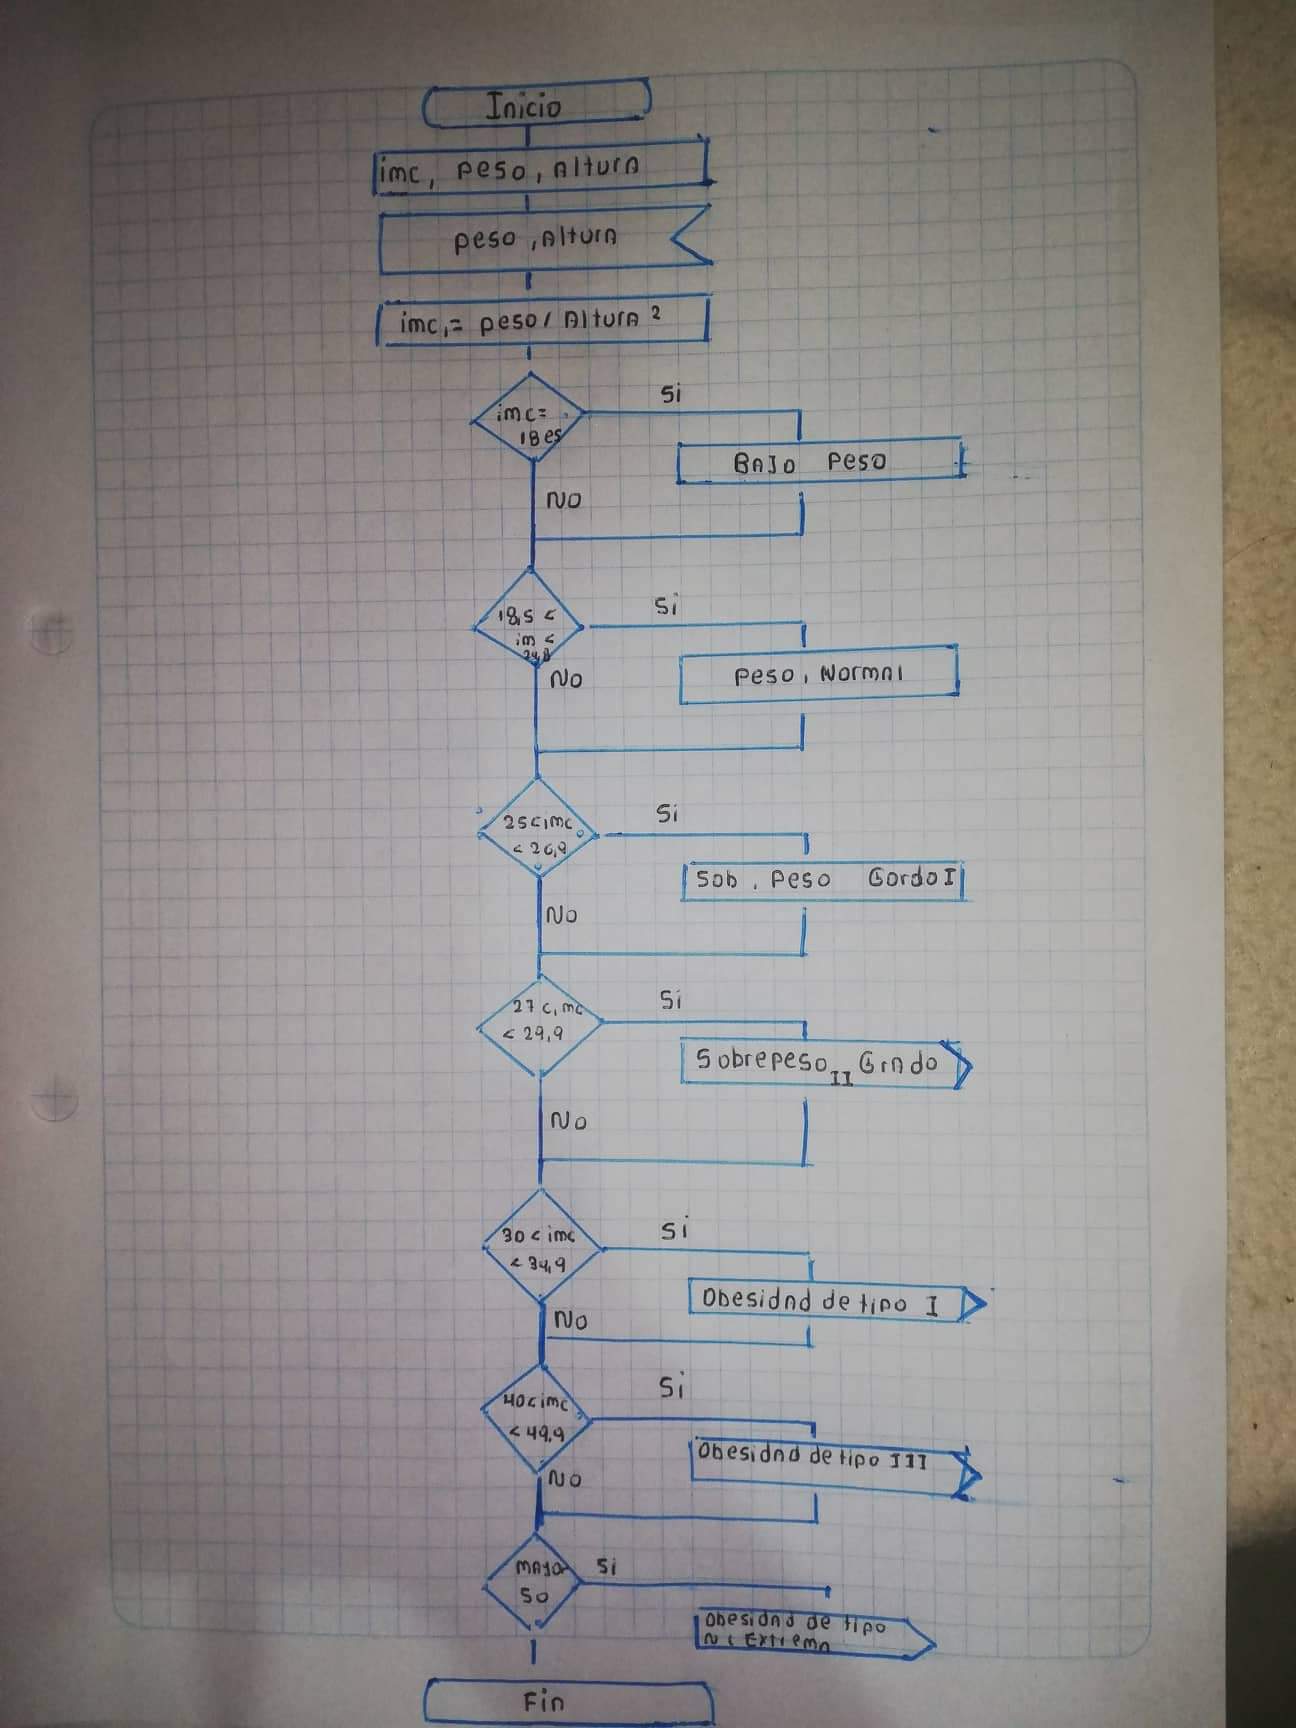 Inicio
imc, peso, Altura
peso, Altura
imc,= peso/ Altura ²
imc=
18es
Si
BAJO Peso
No
18,5 <
im <
Si
Peso, Normal
No
25<imc
< 26,9
Si
Sob, Peso Gordo I
No
27 <,mc
< 29,9
Si
Sobrepeso II Grado
No
30 < imc
< 34,9
Si
Obesidad de tipo I
No
40< imc
< 49,9
Si
Obesidad de tipo III
No
mayor
50
Si
Obesidad de tipo
Extrema
Fin